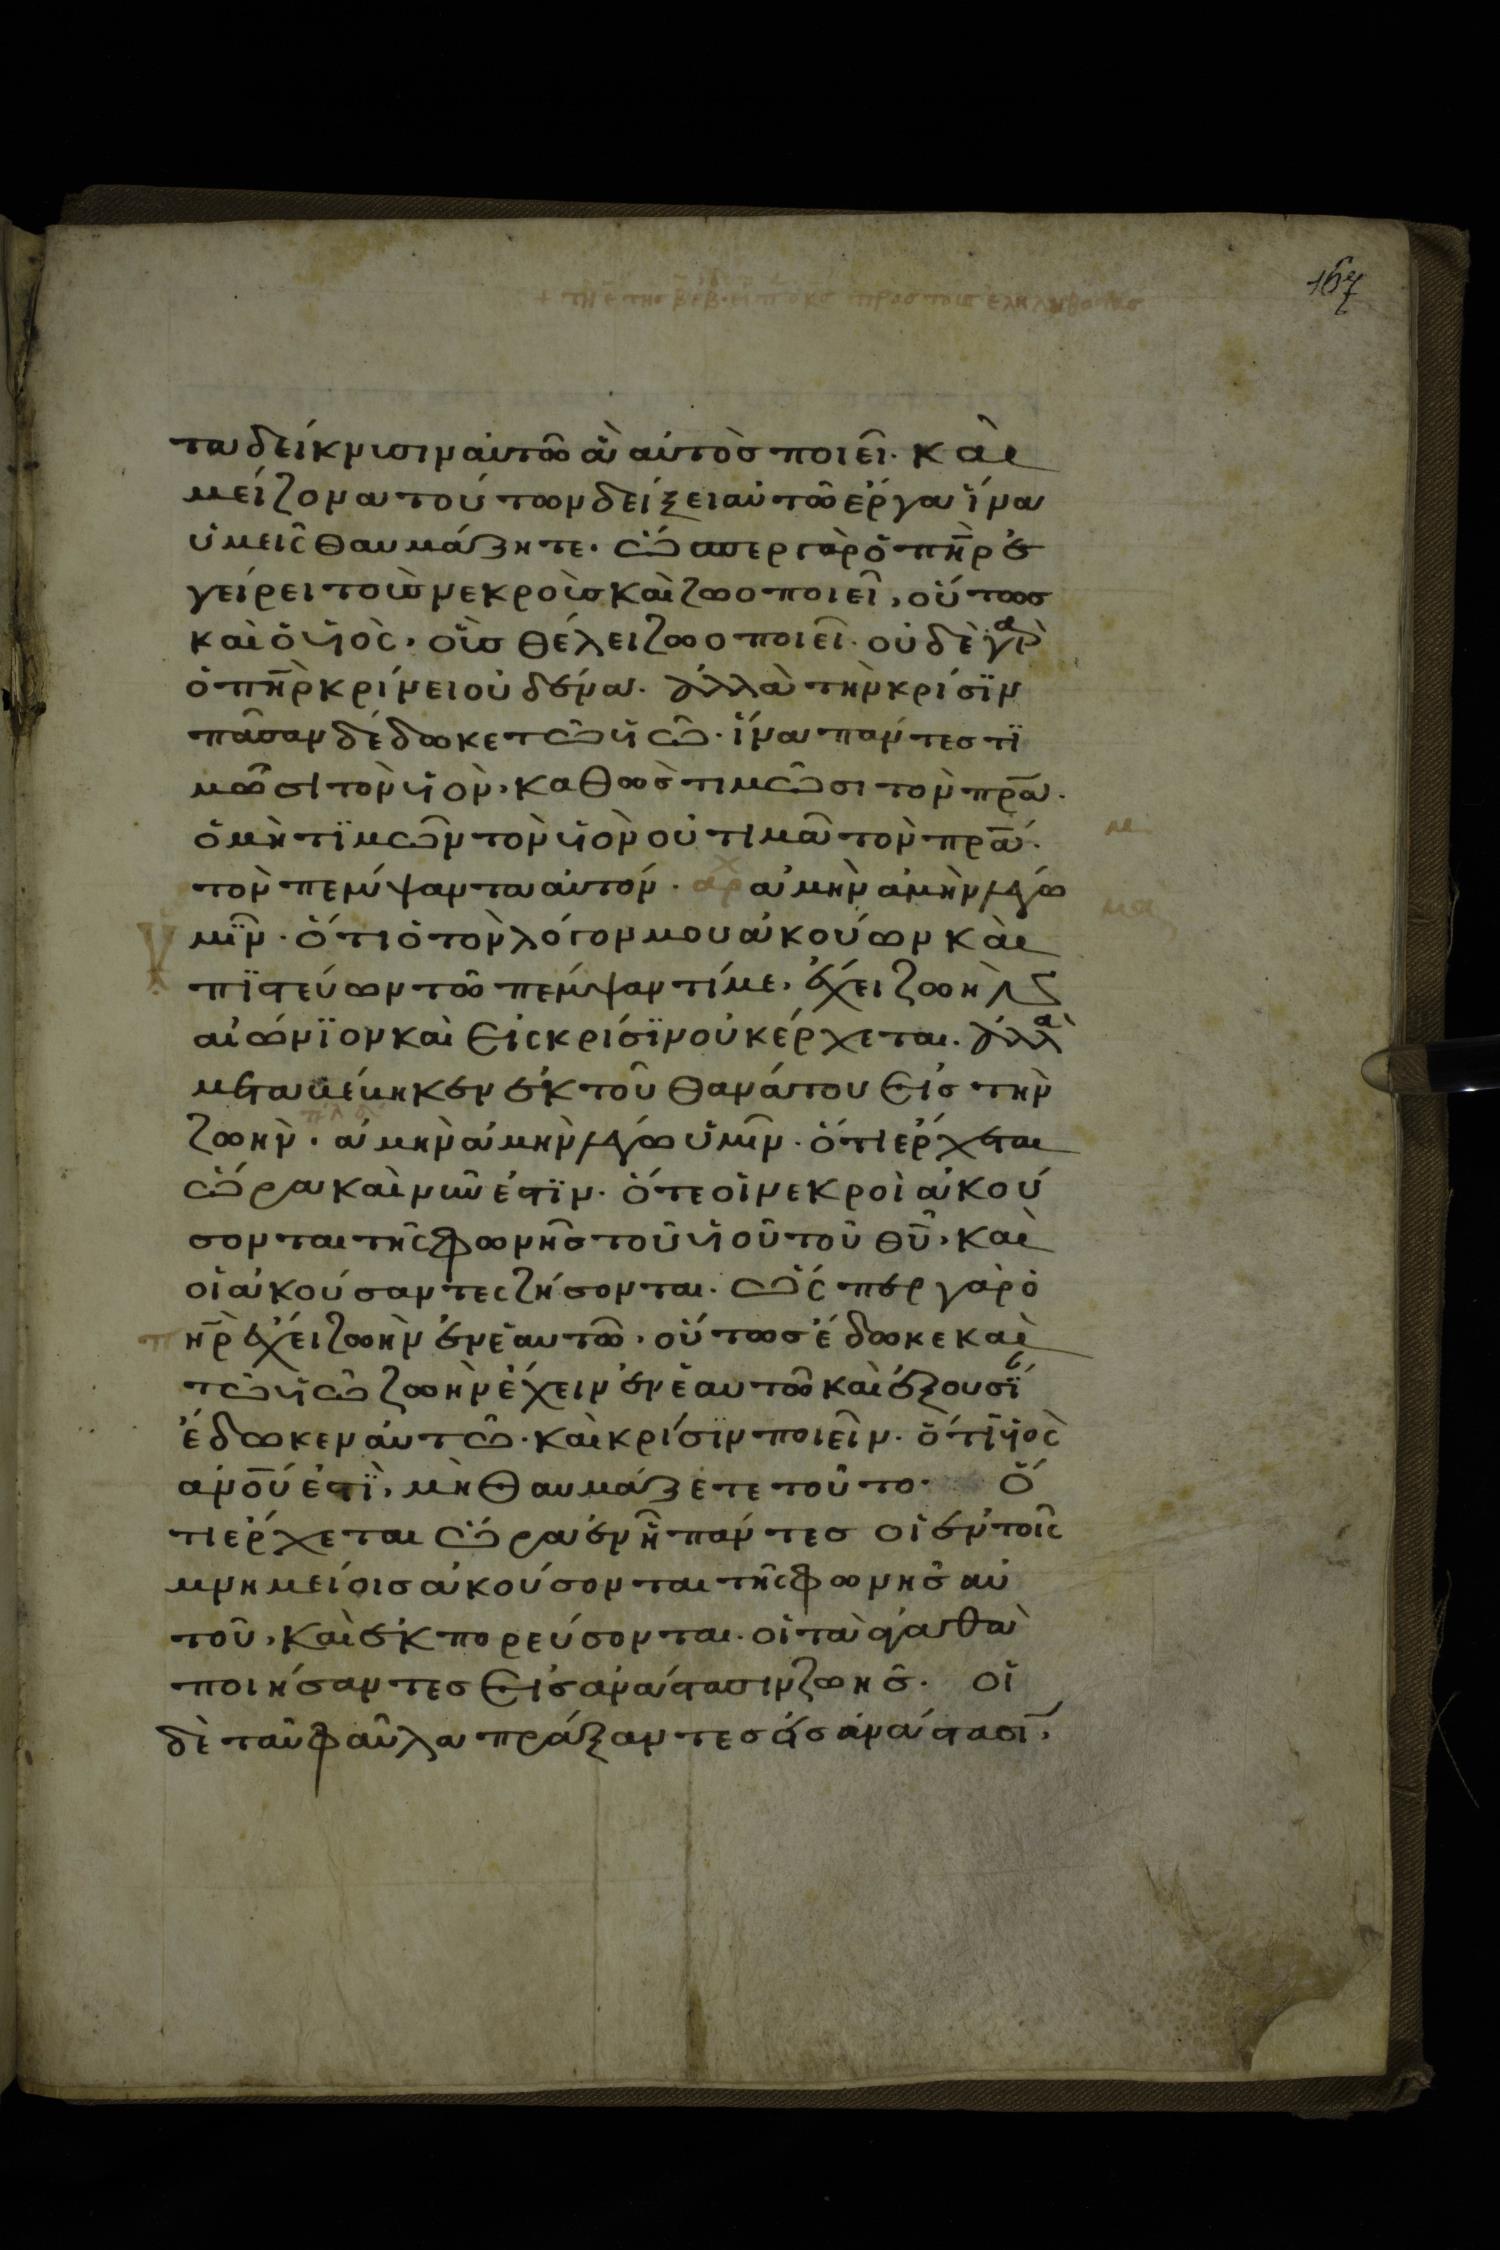 167
τα δείκνυσιν αὐτῶ ἃ αὐτὸς ποιεῖ. καὶ
μείζονα τούτων δείξει αὐτῶ ἔργα ἵνα
ὑμεῖς θαυμάζητε. ὥσπερ γὰρ ὁ πη̅ρ ἐ
γείρει τοὺς νεκροὺς καὶ ζωοποιεῖ, οὕτως
καὶ ὁ υἱὸς, οὓς θέλει ζωοποιεῖ. οὐδὲ γὰρ
ὁ πη̅ρ κρίνει οὐδένα. ἀλλὰ τὴν κρίσϊν
πᾶσαν δέδωκε τῶ υἱῶ. ἵνα πάντες τϊ
μῶσι τὸν υἱὸν, καθὼς τιμῶσι τὸν πρ̅α.
ὁ μὴ τϊμῶν τὸν υἱὸν οὐ τιμᾶ τὸν πρ̅α.
τὸν πέμψαντα αὐτόν. αρχ ἀμὴν ἀμὴν λέγω ὑ
μῖν. ὅτι ὁ τὸν λόγον μου ἀκούων καὶ
πϊστεύων τῶ πέμψαντί με, ἔχει ζωὴν
αἰώνϊον καὶ εἰς κρίσϊν οὐκ ἔρχεται. ἀλλὰ
μεταβέβηκεν ἐκ τοῦ θανάτου εἰς τὴν
ζωὴν. ἀμὴν ἀμὴν λέγω ὑμῖν. ὅτι ἔρχεται
ὥρα καὶ νῦν ἐστϊν. ὅτε οἱ νεκροὶ ἀκού
σονται τῆς φωνῆς τοῦ υἱοῦ τοῦ θυ̅, καὶ
οἱ ἀκούσαντες ζήσονται. ὥσπερ γὰρ ὁ
πη̅ρ ἔχει ζωὴν ἐν ἑαυτῶ, οὕτως ἔδωκε καὶ
τῶ υἱῶ ζωὴν ἔχειν ἐν ἑαυτῶ καὶ ἐξουσί
ἔδωκεν αὐτῶ. καὶ κρίσϊν ποιεῖν. ὅτι υἱὸς
ανο̅υ ἐστϊ, μὴ θαυμάζετε τοῦτο. ὅ
τι ἔρχεται ὥρα ἐν ἧ πάντες οἱ ἐν τοῖς
μνημείοις ἀκούσονται τῆς φωνῆς αὐ
τοῦ, καὶ ἐκπορεύσονται. οἱ τὰ ἀγαθὰ
ποιήσαντες εἰς ἀνάστασιν ζωῆς. οἱ
δὲ τὰ φαῦλα πράξαντες εἰς ἀνάστασϊ,